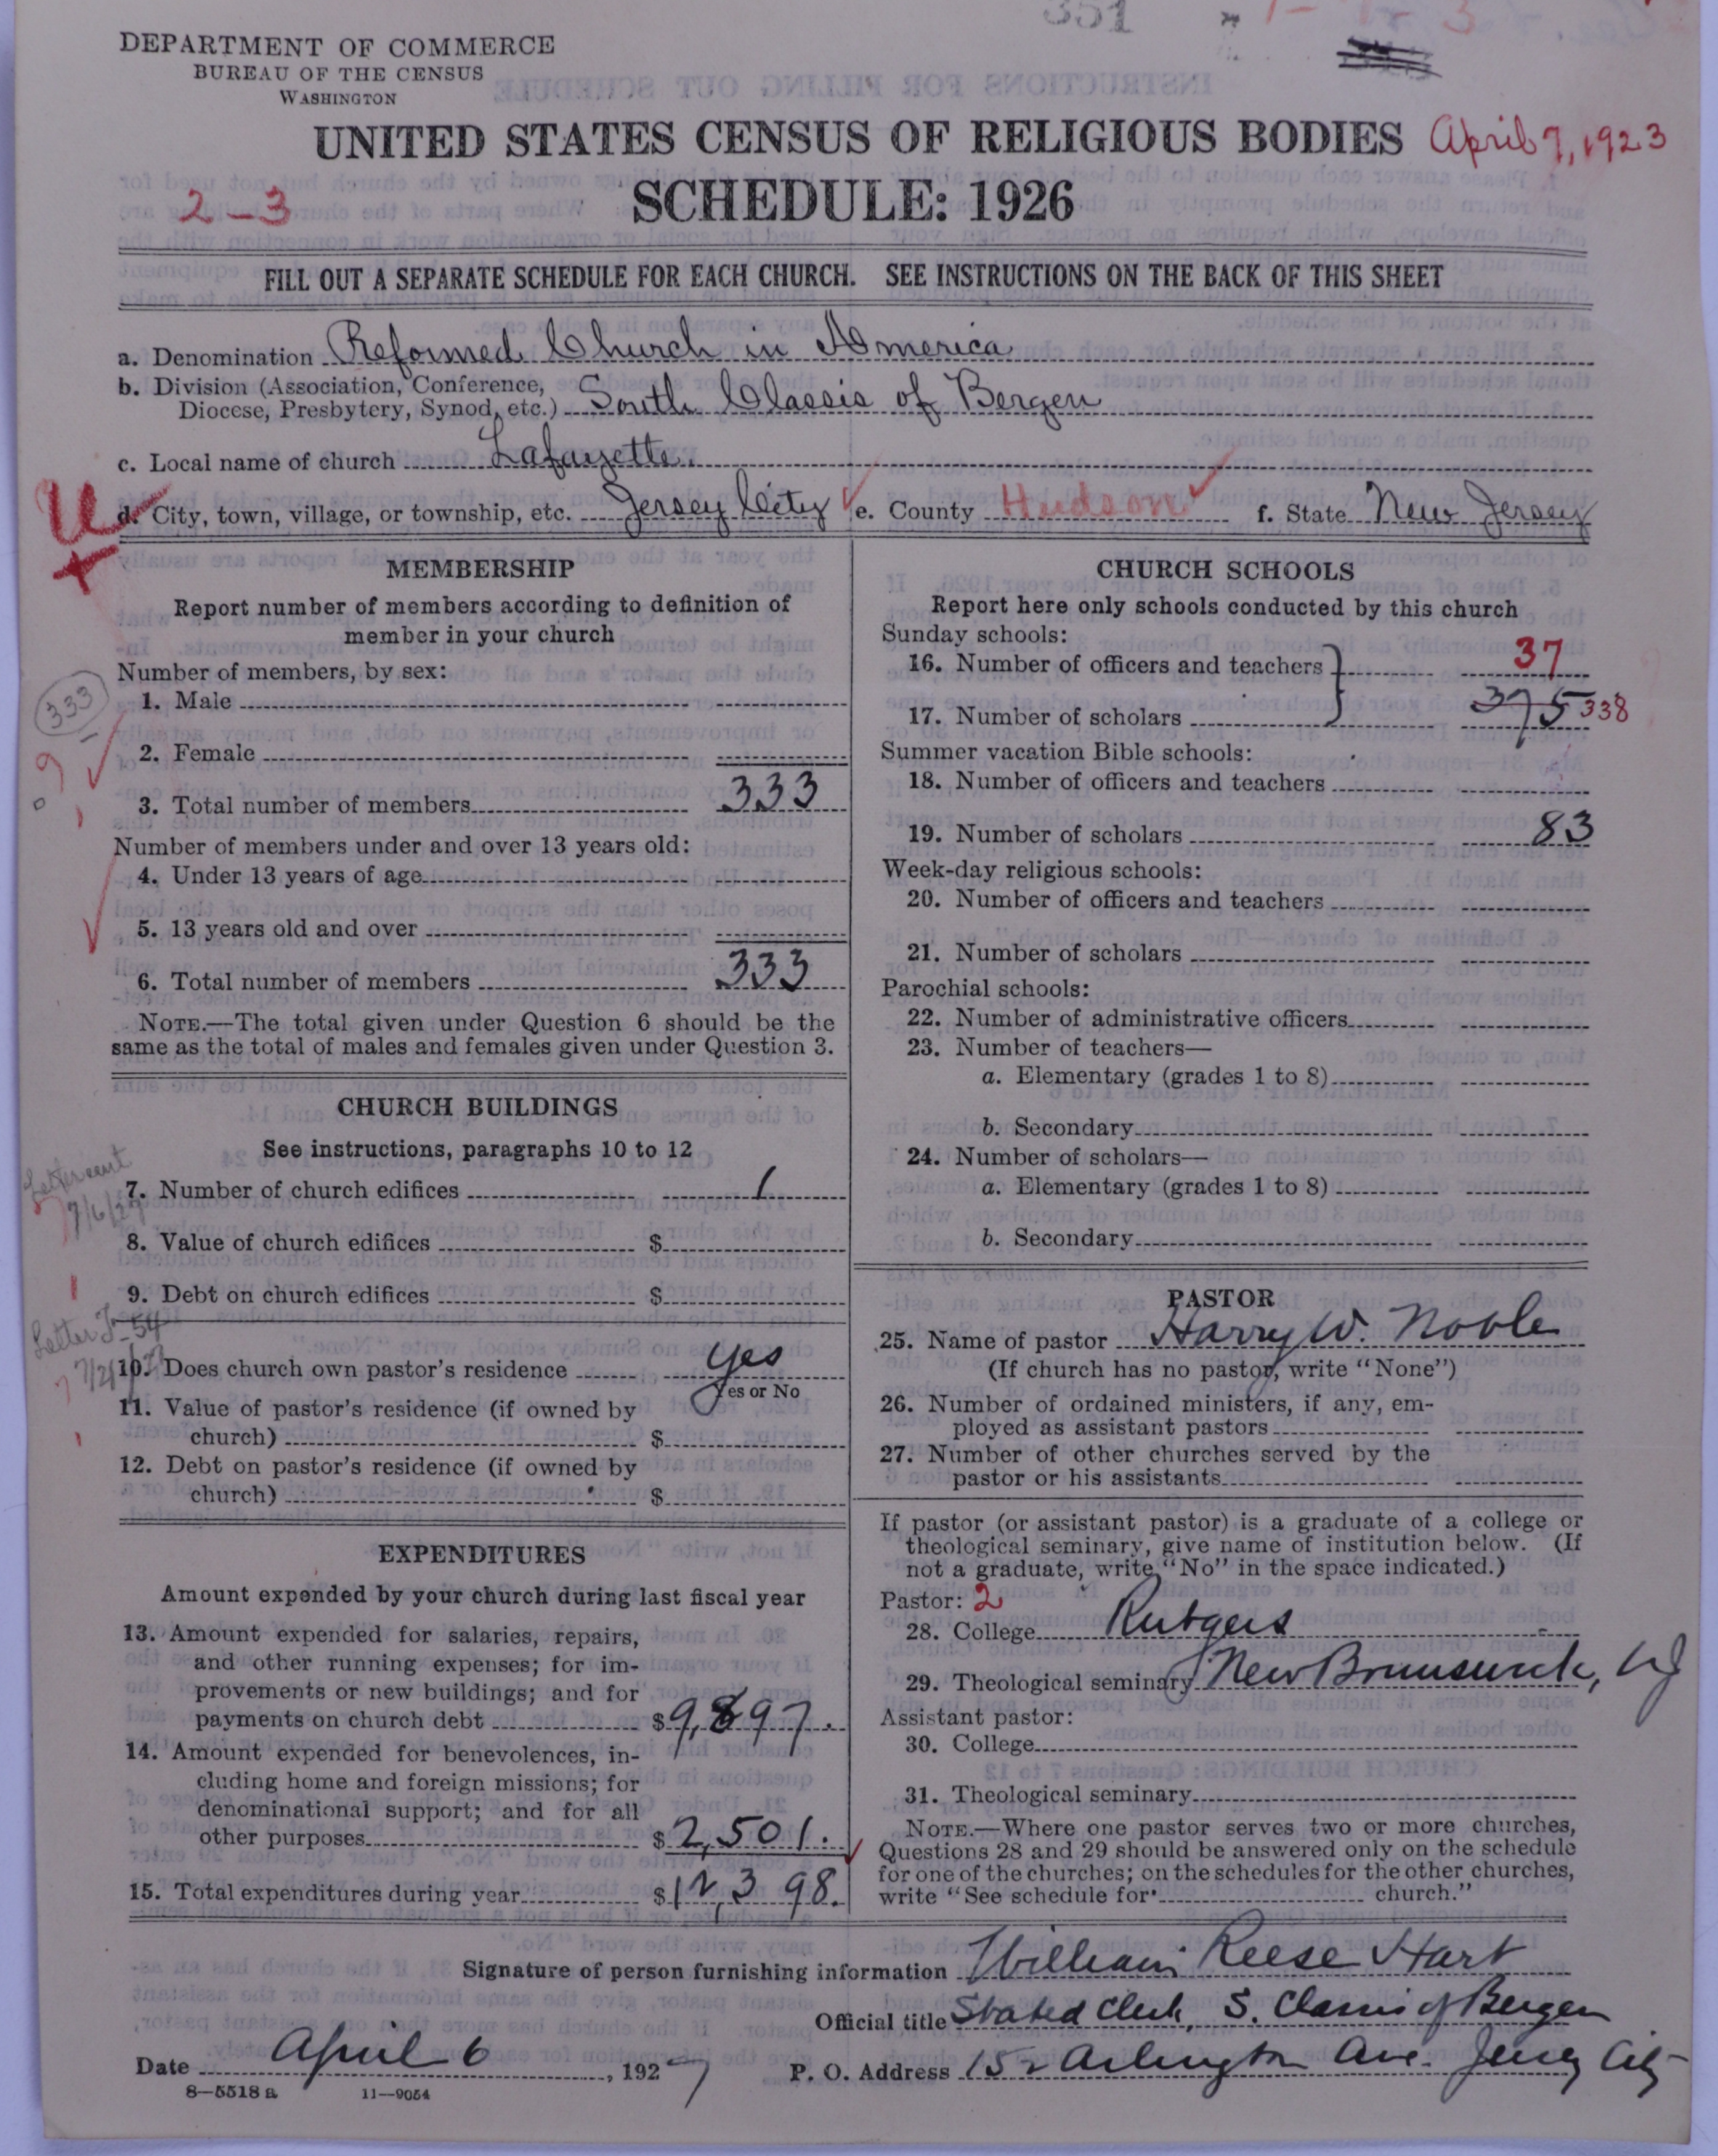 351
DEPARTMENT OF COMMERCE
BUREAU OF THE CENSUS
WASHINGTON
UNITED STATES CENSUS OF RELIGIOUS BODIES April 7, 1923
2-3
SCHEDULE: 1926
FILL OUT A SEPARATE SCHEDULE FOR EACH CHURCH. SEE INSTRUCTIONS ON THE BACK OF THIS SHEET
a. Denomination Reformed Church in America
b. Division (Association, Conference,
Diocese, Presbytery, Synod, etc.) South Classis of Bergen
c. Local name of church Lafayette.
d. City, town, village, or township, etc. Jersey City e. County Hudson f. State New Jersey
MEMBERSHIP
Report number of members according to definition of
member in your church
Number of members, by sex:
333
1. Male
2. Female
3. Total number of members 333
Number of members under and over 13 years old:
4. Under 13 years of age
5. 13 years old and over
6. Total number of members 333
NOTE.—The total given under Question 6 should be the
same as the total of males and females given under Question 3.
CHURCH BUILDINGS
See instructions, paragraphs 10 to 12
Letter sent
7/6/27
7. Number of church edifices 1
8. Value of church edifices $
9. Debt on church edifices $
10. Does church own pastor's residence yes
Yes or No
11. Value of pastor's residence (if owned by
church) $
12. Debt on pastor's residence (if owned by
church) $
EXPENDITURES
Amount expended by your church during last fiscal year
13. Amount expended for salaries, repairs,
and other running expenses; for im-
provements or new buildings; and for
payments on church debt $9,897.
14. Amount expended for benevolences, in-
cluding home and foreign missions; for
denominational support; and for all
other purposes $2,501.
15. Total expenditures during year $12,398.
CHURCH SCHOOLS
Report here only schools conducted by this church
Sunday schools:
16. Number of officers and teachers 37
17. Number of scholars 375 338
Summer vacation Bible schools:
18. Number of officers and teachers
19. Number of scholars 83
Week-day religious schools:
20. Number of officers and teachers
21. Number of scholars
Parochial schools:
22. Number of administrative officers
23. Number of teachers—
a. Elementary (grades 1 to 8)
b. Secondary
24. Number of scholars—
a. Elementary (grades 1 to 8)
b. Secondary
PASTOR
25. Name of pastor Harry W. Noble
(If church has no pastor, write "None")
26. Number of ordained ministers, if any, em-
ployed as assistant pastors
27. Number of other churches served by the
pastor or his assistants
If pastor (or assistant pastor) is a graduate of a college or
theological seminary, give name of institution below. (If
not a graduate, write "No" in the space indicated.)
Pastor: 2
28. College Rutgers
29. Theological seminary New Brunswick, NJ
Assistant pastor:
30. College
31. Theological seminary
NOTE.—Where one pastor serves two or more churches,
Questions 28 and 29 should be answered only on the schedule
for one of the churches; on the schedules for the other churches,
write "See schedule for church."
Signature of person furnishing information William Reese Hart
Official title Stated Clerk, S. Classis of Bergen
Date April 6, 1927 P. O. Address 152 Arlington Ave. Jersey City
8—5518 a 11—9054